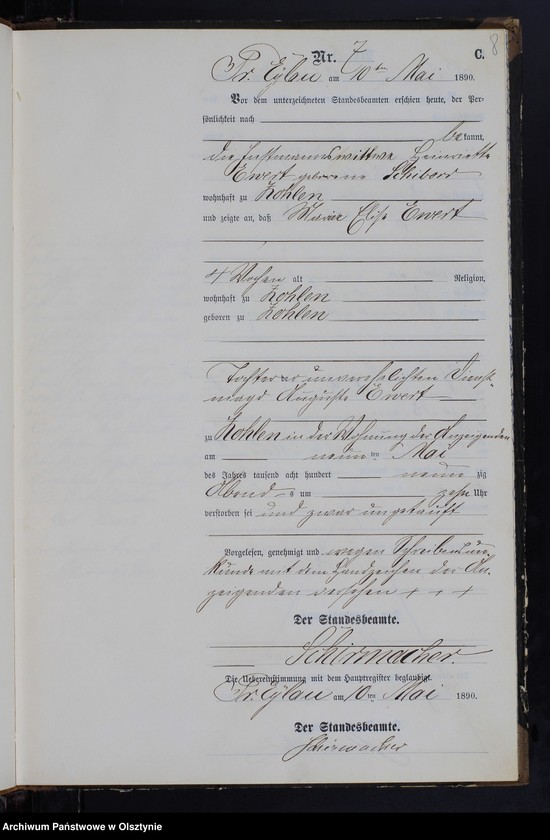 8
Nr. 7 C.
Pr. Eylau am 10ten Mai 1890.
Vor dem unterzeichneten Standesbeamten erschien heute, der Per-
sönlichkeit nach
bekannt,
die Instmannswittwe Henriette
Ewert geborene Schibord
wohnhaft zu Zohlen
und zeigte an, daß Marie Elise Ewert
4 Wochen alt Religion,
wohnhaft zu Zohlen
geboren zu Zohlen
Tochter der unverehelichten Dienst-
magd Auguste Ewert
zu Zohlen in der Wohnung der Anzeigenden
am neunten Mai
des Jahres tausend acht hundert neunzig
Abends um zehn Uhr
verstorben sei und zwar ungetauft
Vorgelesen, genehmigt und wegen Schreibensun-
kunde mit dem Handzeichen der An-
zeigenden versehen + + +
Der Standesbeamte.
Schirmacher.
Die Uebereinstimmung mit dem Hauptregister beglaubigt.
Pr. Eylau am 10ten Mai 1890.
Der Standesbeamte.
Schirmacher
Archiwum Państwowe w Olsztynie